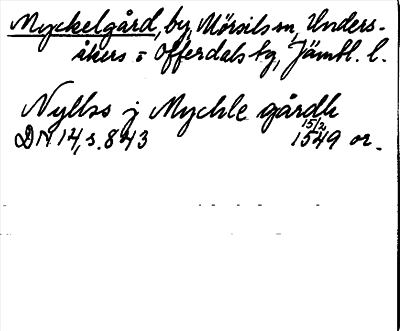 Myckelgård, by, Mörsils sn, Unders-
åkers o Offerdals tg, Jämtl. l.
Nylss j Myckle gårdh
DN 14, s. 843 15/2 1549 or.